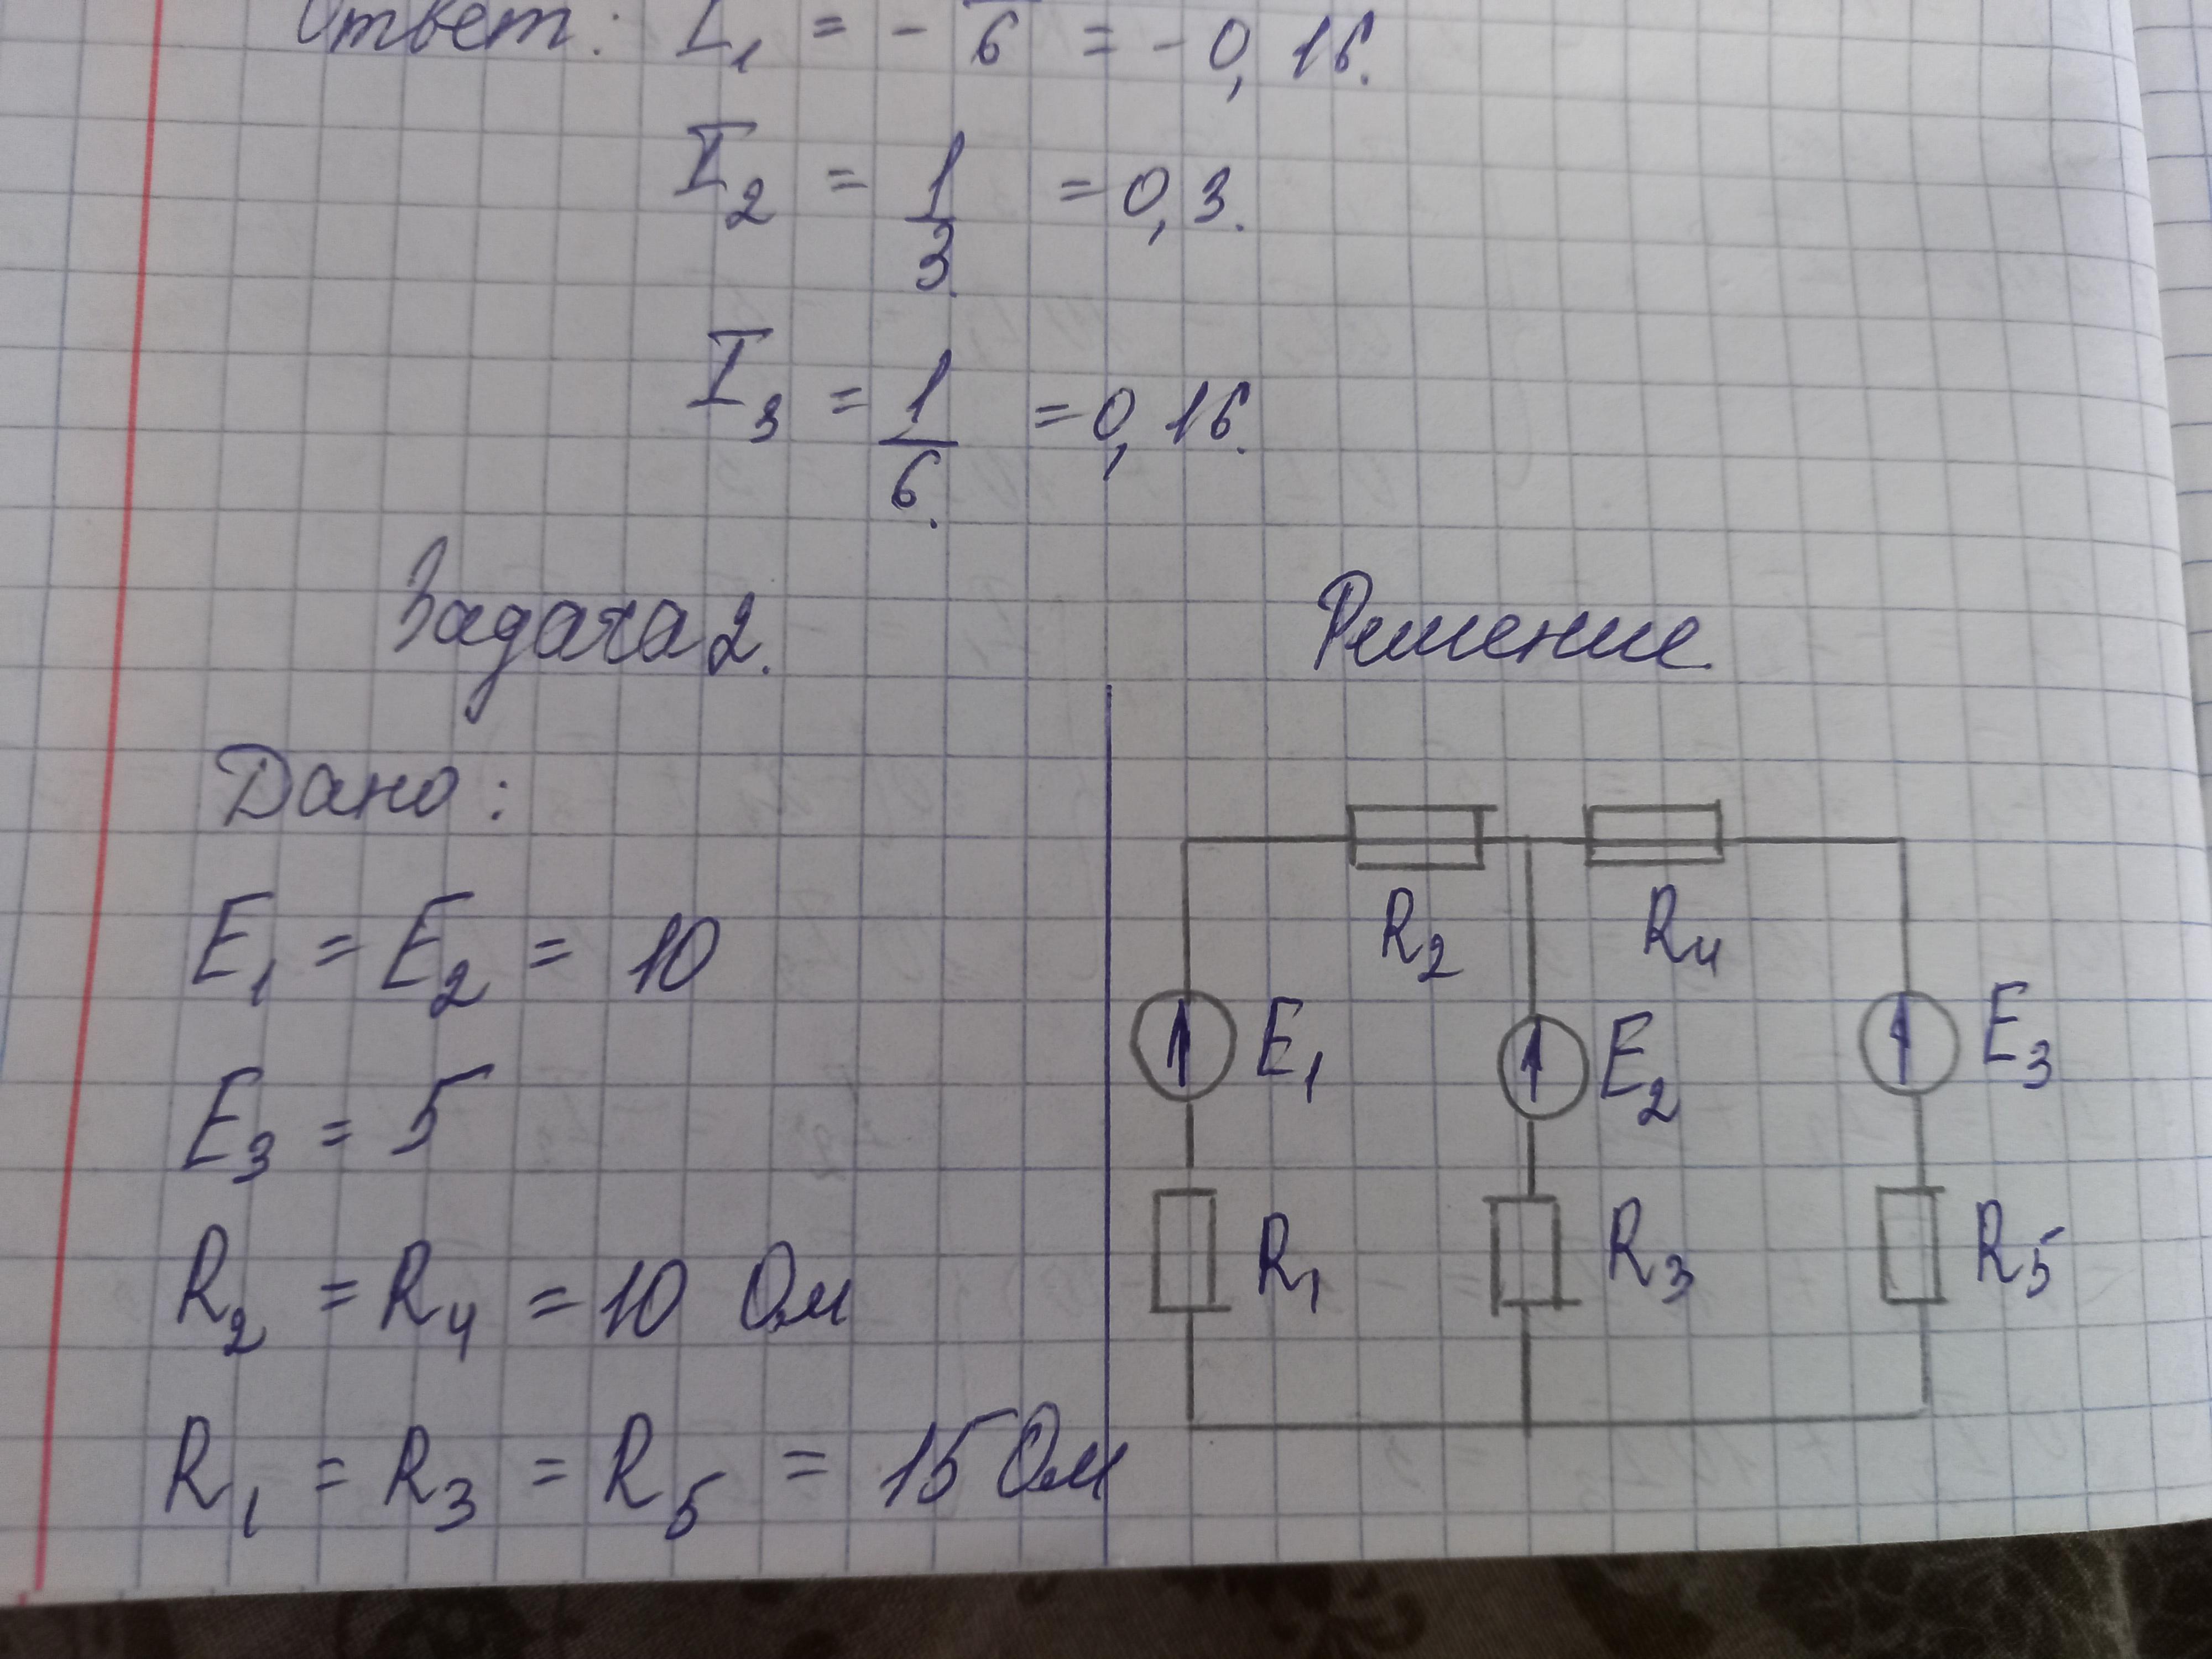 Ответ: I₁ = - /6 = - 0, 16.
I₂ = 1/3. = 0, 3.
I₃ = 1/6. = 0, 16.
Задача 2. Решение
Дано:
E₁ = E₂ = 10
E₃ = 5
R₂ = R₄ = 10 Ом
R₁ = R₃ = R₅ = 15 Ом
R₂ R₄
E₁ E₂ E₃
R₁ R₃ R₅